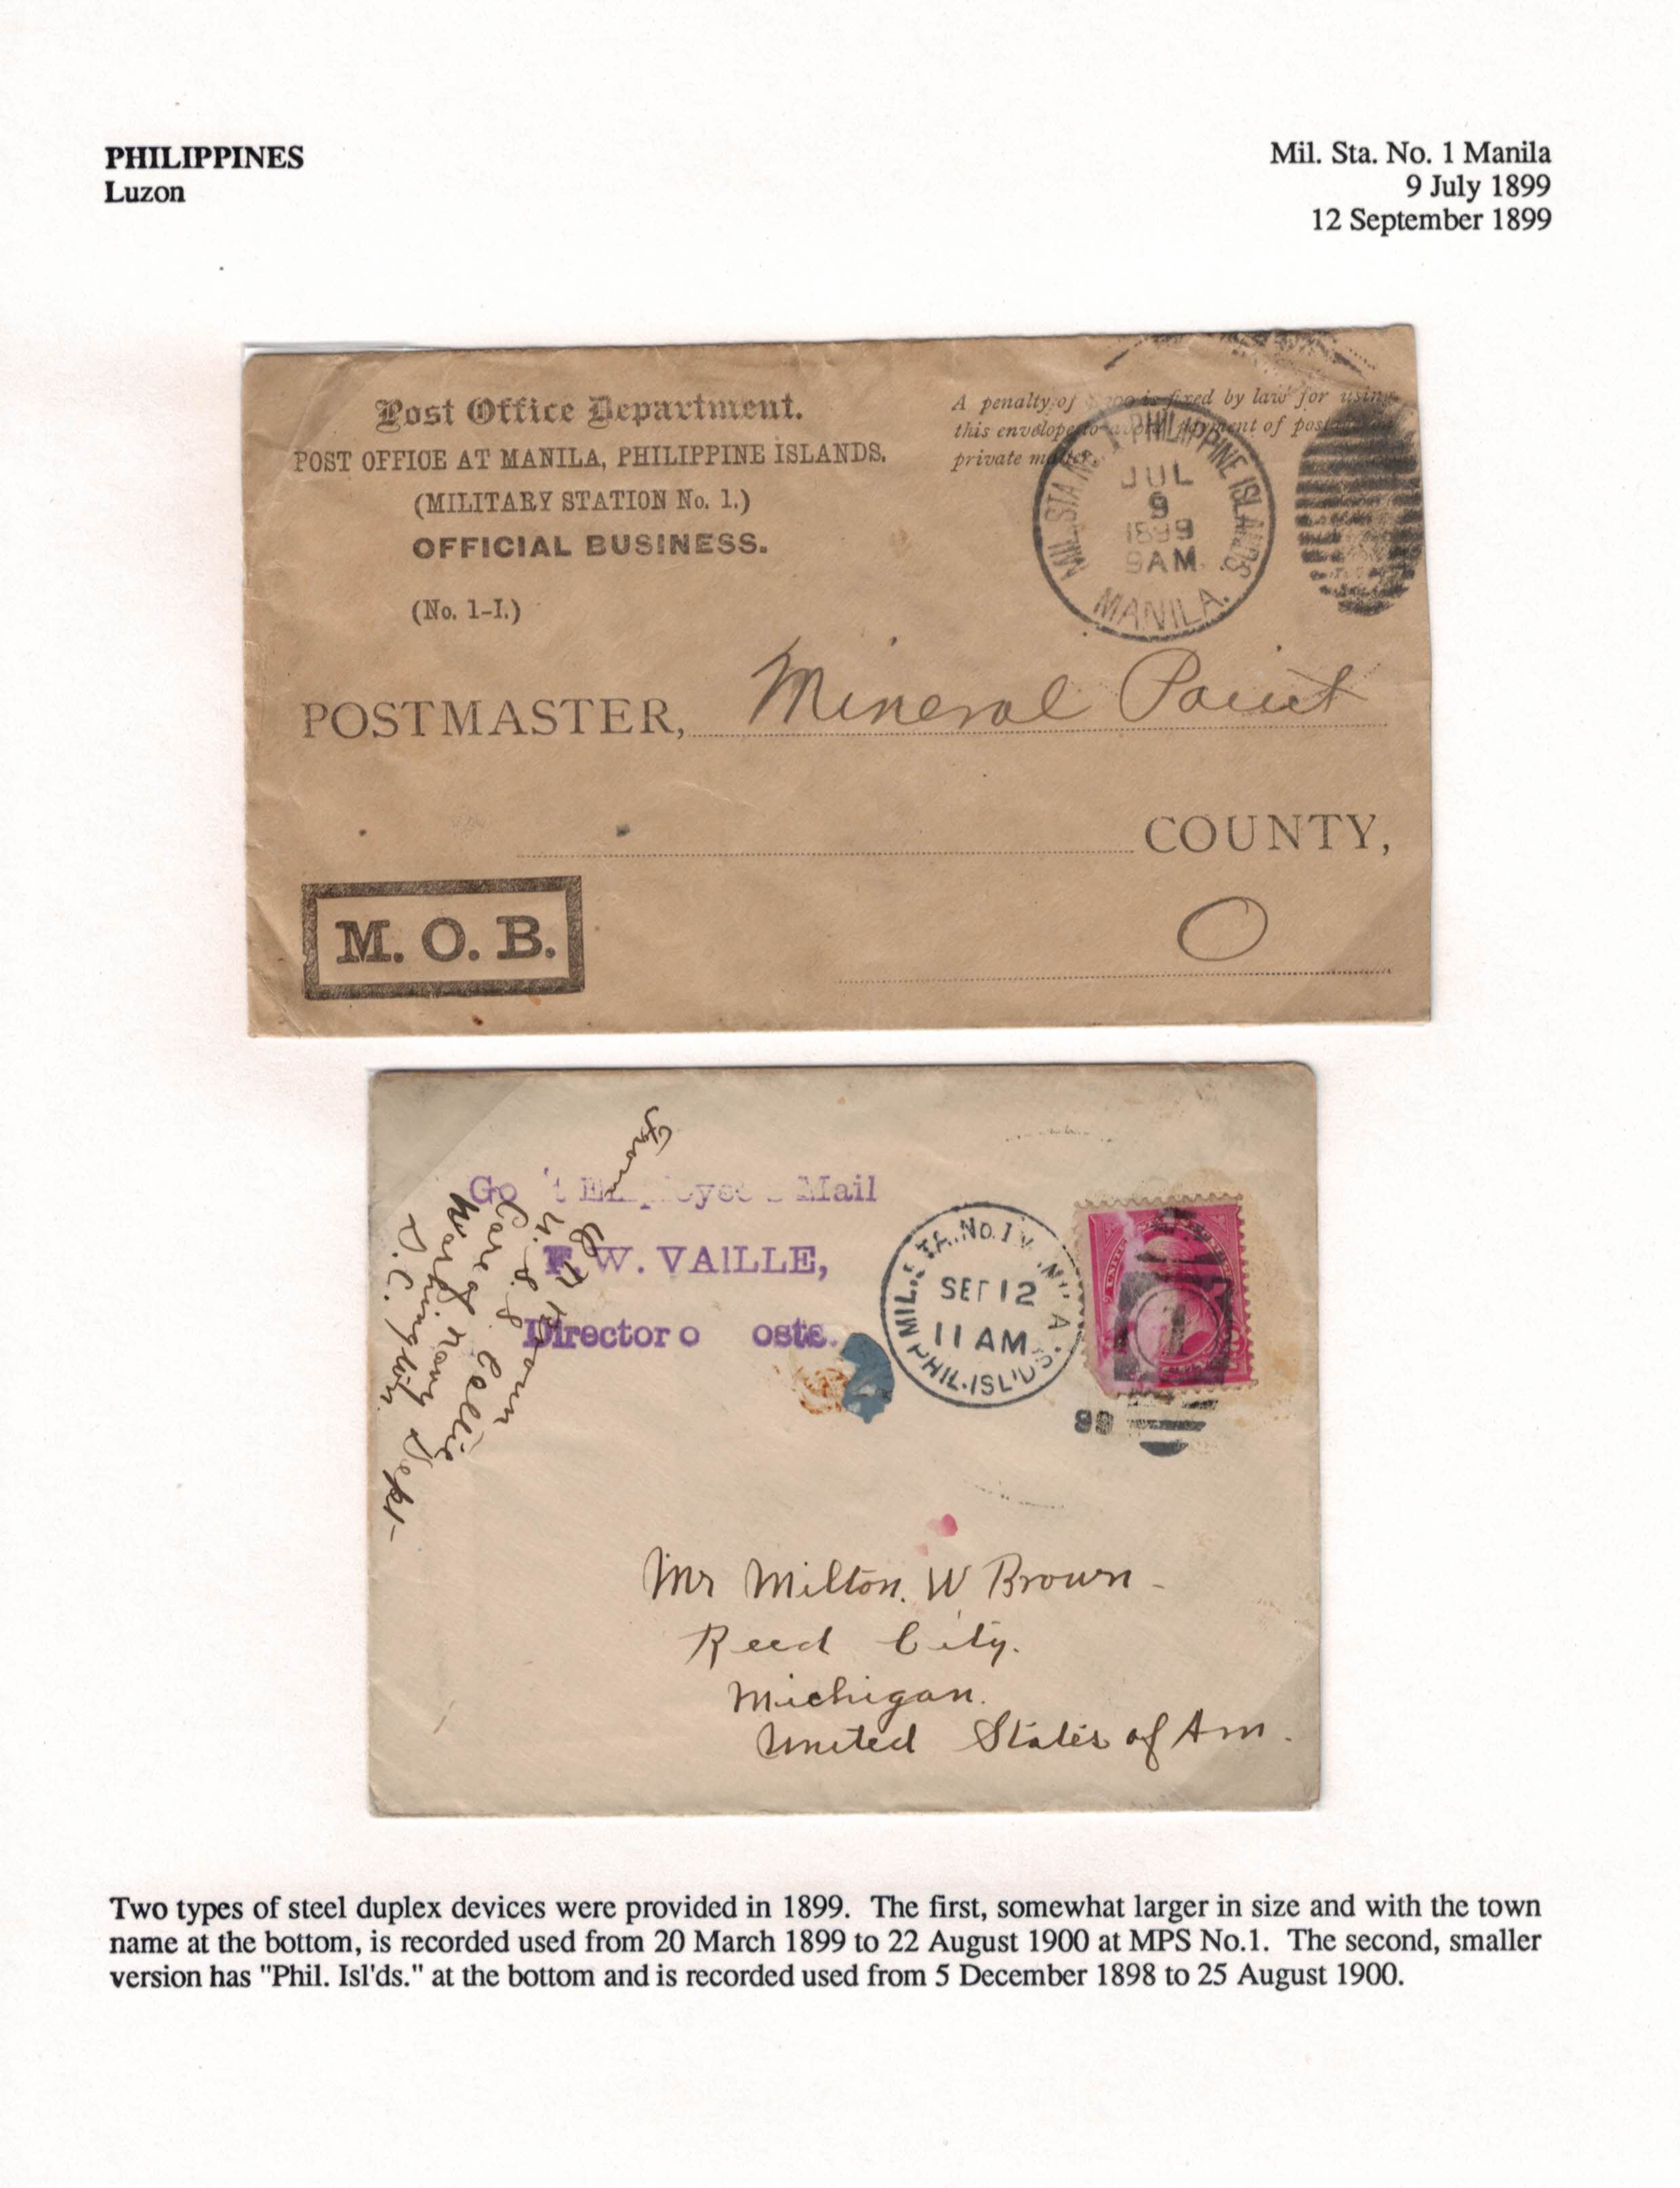 PHILIPPINES
Luzon
Mil. Sta. No. 1 Manila
9 July 1899
12 September 1899
Post Office Department.
POST OFFICE AT MANILA, PHILIPPINE ISLANDS.
(MILITARY STATION No. 1.)
OFFICIAL BUSINESS.
(No. 1-I.)
A penalty of is fixed by law for using
this envelope to avoid payment of
private matter.
MIL. STA. No. 1 PHILIPPINE ISLANDS.
JUL
9
1899
9AM
MANILA.
POSTMASTER, Mineral Point
COUNTY,
O
M. O. B.
From
U. S. S.
Care of
Navy Dept
Washington
D. C.
Mail
F. W. VAILLE,
Director o osts.
MIL. STA. No. 1
SEP 12
11 AM
PHIL. ISL'DS.
99
1
Mr Milton. W Brown -
Reed City.
Michigan.
United States of Am.
Two types of steel duplex devices were provided in 1899. The first, somewhat larger in size and with the town
name at the bottom, is recorded used from 20 March 1899 to 22 August 1900 at MPS No.1. The second, smaller
version has "Phil. Isl'ds." at the bottom and is recorded used from 5 December 1898 to 25 August 1900.